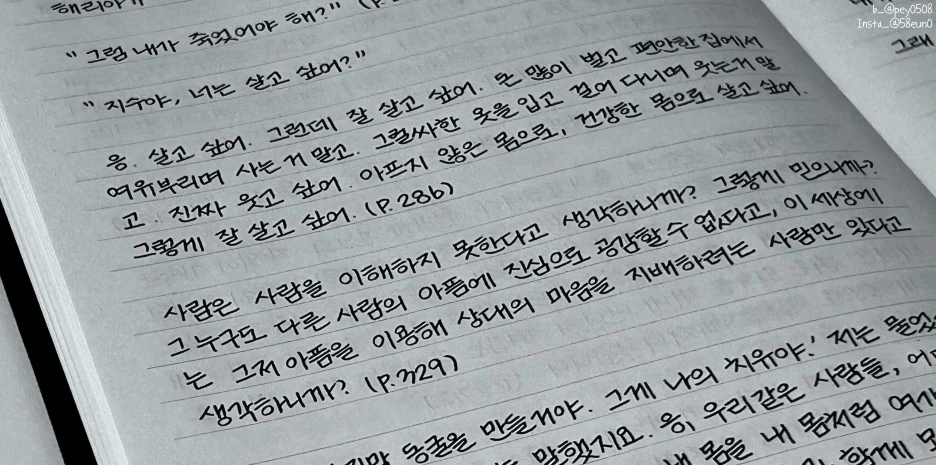 b_@pey0508
Insta_@58eun0
해리야"
"그럼 내가 죽었어야 해?"
"지수야, 너는 살고 싶어?"
응. 살고 싶어. 그런데 잘 살고 싶어. 돈 많이 벌고 편안한 집에서
여유부리며 사는 거 말고. 그럴싸한 옷을 입고 걸어 다니며 웃는거 말
고. 진짜 웃고 싶어. 아프지 않은 몸으로, 건강한 몸으로 살고 싶어.
그렇게 잘 살고 싶어. (P.286)
사람은 사람을 이해하지 못한다고 생각하나까? 그렇게 믿으니까?
그 누구도 다른 사람의 아픔에 진심으로 공감할 수 없다고, 이 세상에
는 그저 아픔을 이용해 상대의 마음을 지배하려는 사람만 있다고
생각하니까? (P.329)
동굴을 만들거야. 그게 나의 치유야.' 저는 물었
말했지요. 응, 우리같은 사람들,
몸을 내 몸처럼 여기
함께
그래